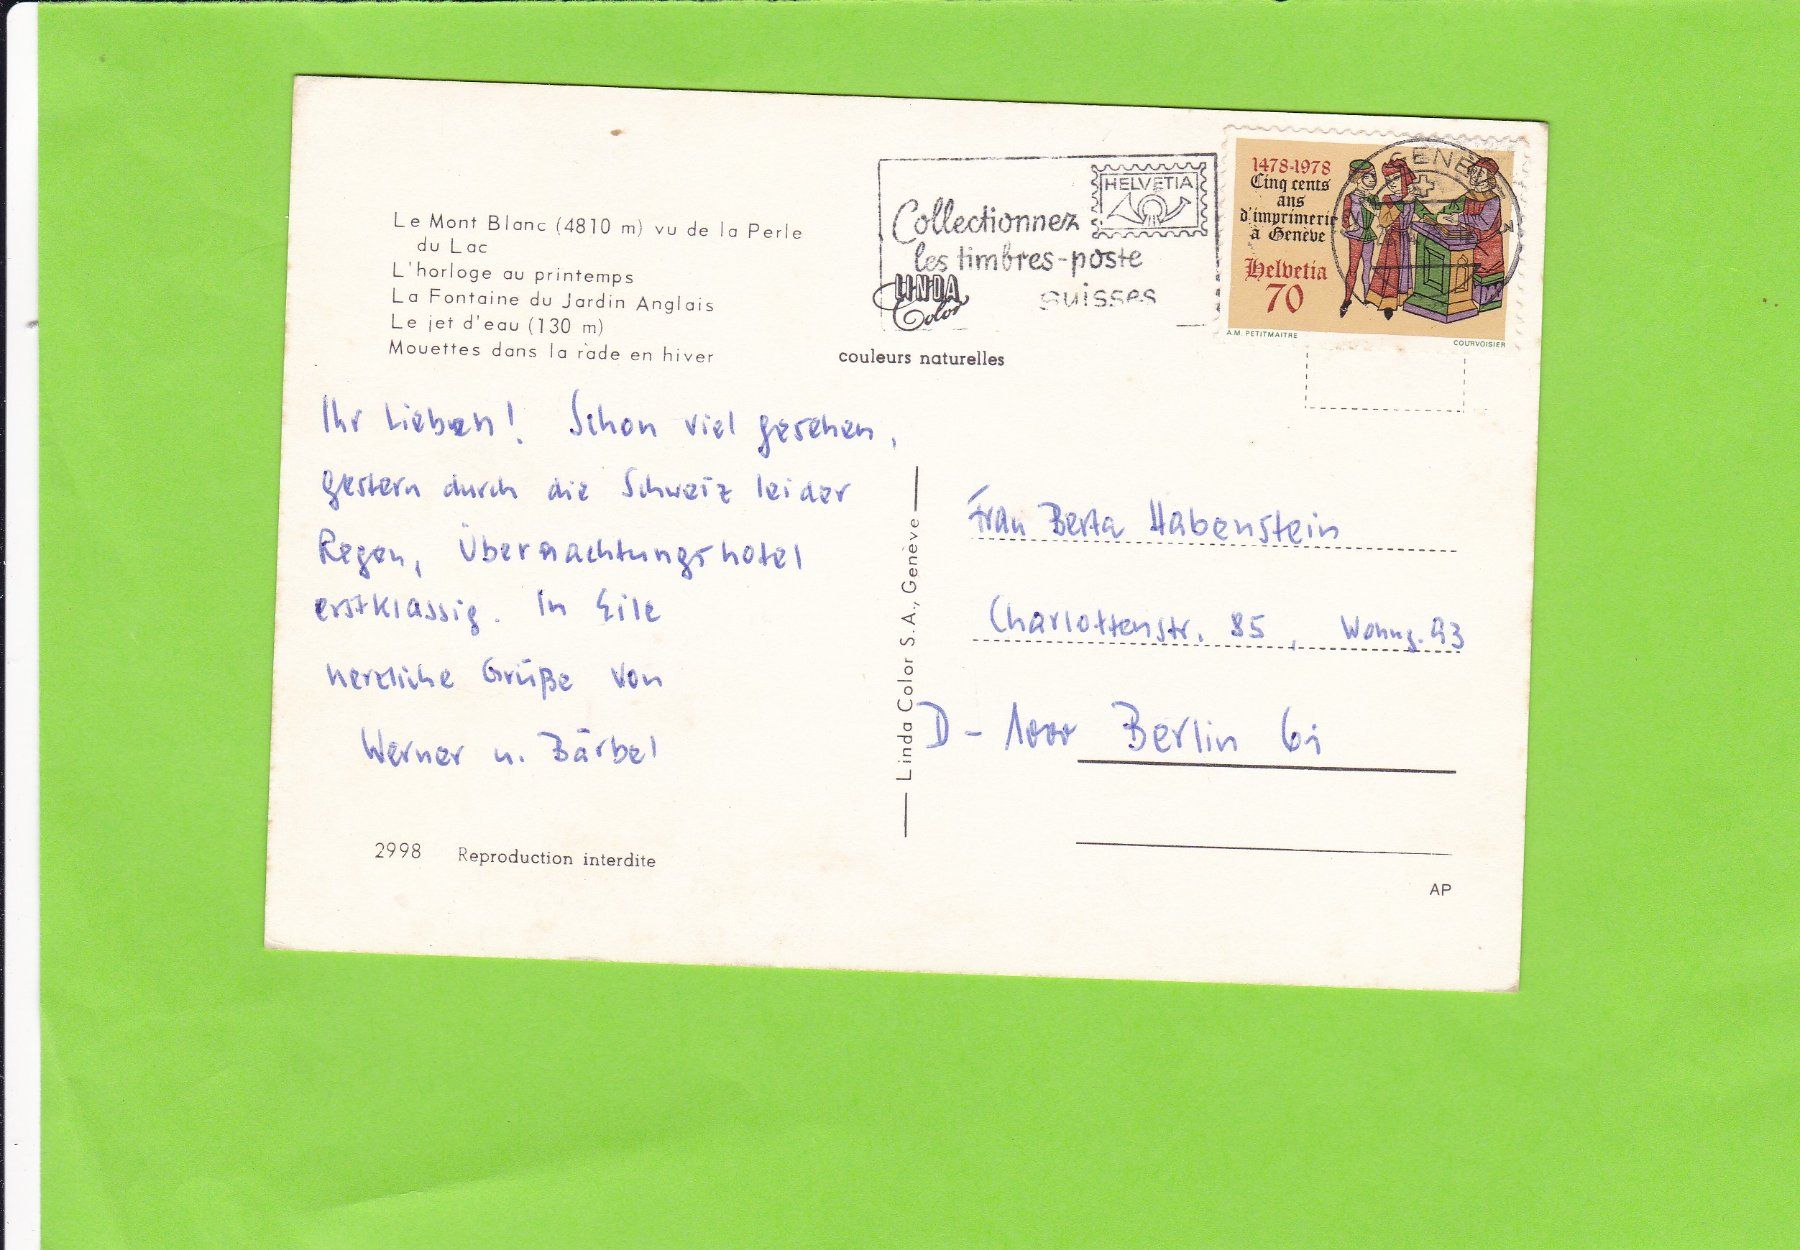 Le Mont Blanc (4810 m) vu de la Perle
du Lac
L'horloge au printemps
La Fontaine du Jardin Anglais
Le jet d'eau (130 m)
Mouettes dans la rade en hiver
HELVETIA
Collectionnez
les timbres-poste
suisses
LINDA
Color
couleurs naturelles
GENÈVE
1478-1978
Cinq cents
ans
d'imprimerie
à Genève
Helvetia
70
A.M. PETITMAITRE
COURVOISIER
Ihr Lieben! Schon viel gesehen,
gestern durch die Schweiz leider
Regen, Übernachtungshotel
erstklassig. In Eile
herzliche Grüße von
Werner u. Bärbel
Linda Color S.A., Genève
Frau Berta Habenstein
Charlottenstr. 85, Wohng. 93
D-1000 Berlin 61
2998 Reproduction interdite
AP